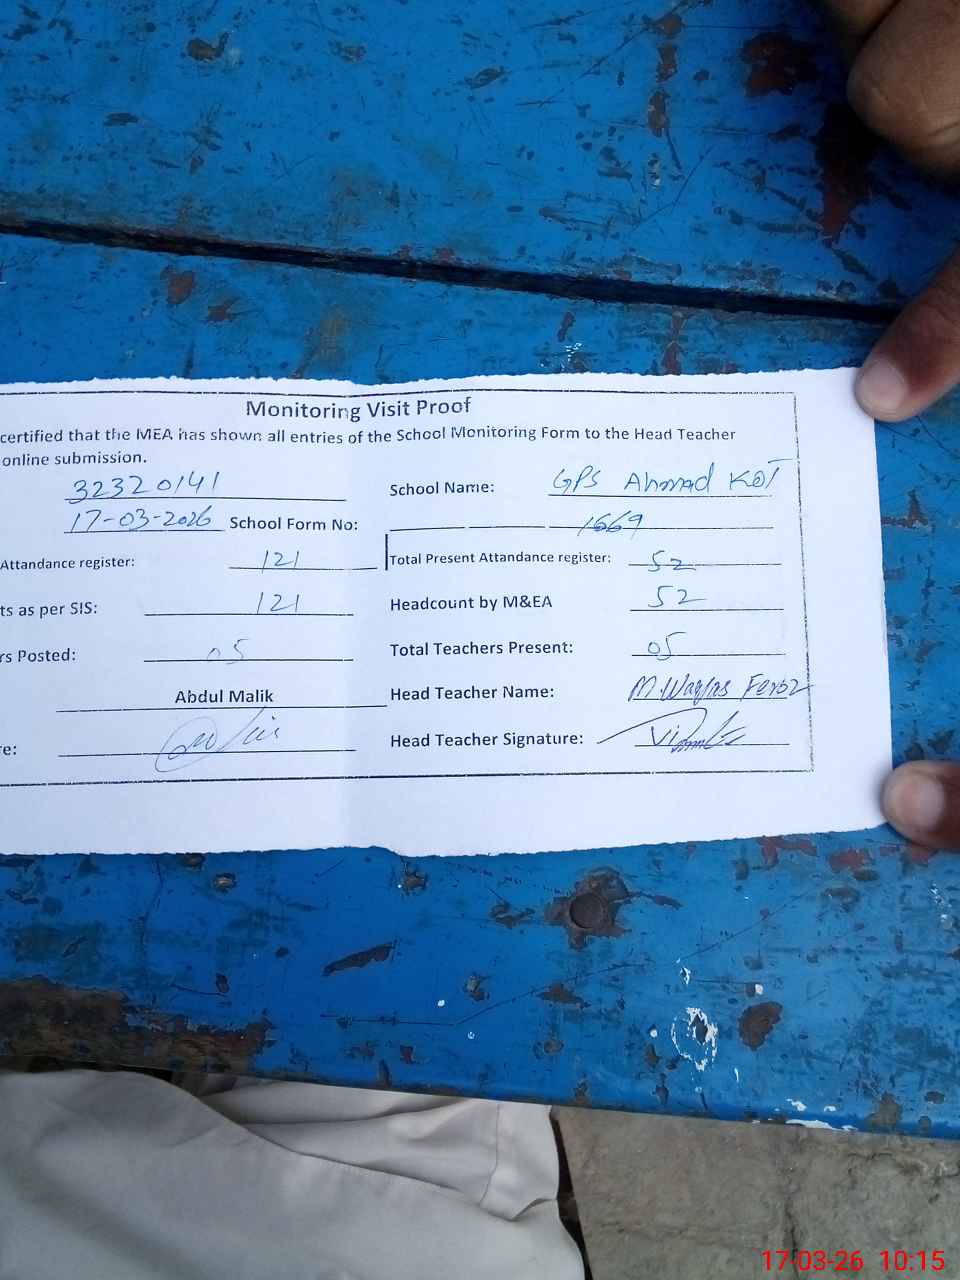 Monitoring Visit Proof
certified that the MEA has shown all entries of the School Monitoring Form to the Head Teacher
online submission.
32320141 School Name: GPS Ahmad Kot
17-03-2026 School Form No: 1669
Attandance register: 121 Total Present Attandance register: 52
ts as per SIS: 121 Headcount by M&EA 52
rs Posted: 05 Total Teachers Present: 05
Abdul Malik Head Teacher Name: M. Waqas Feroz
re: Head Teacher Signature:
17-03-26 10:15